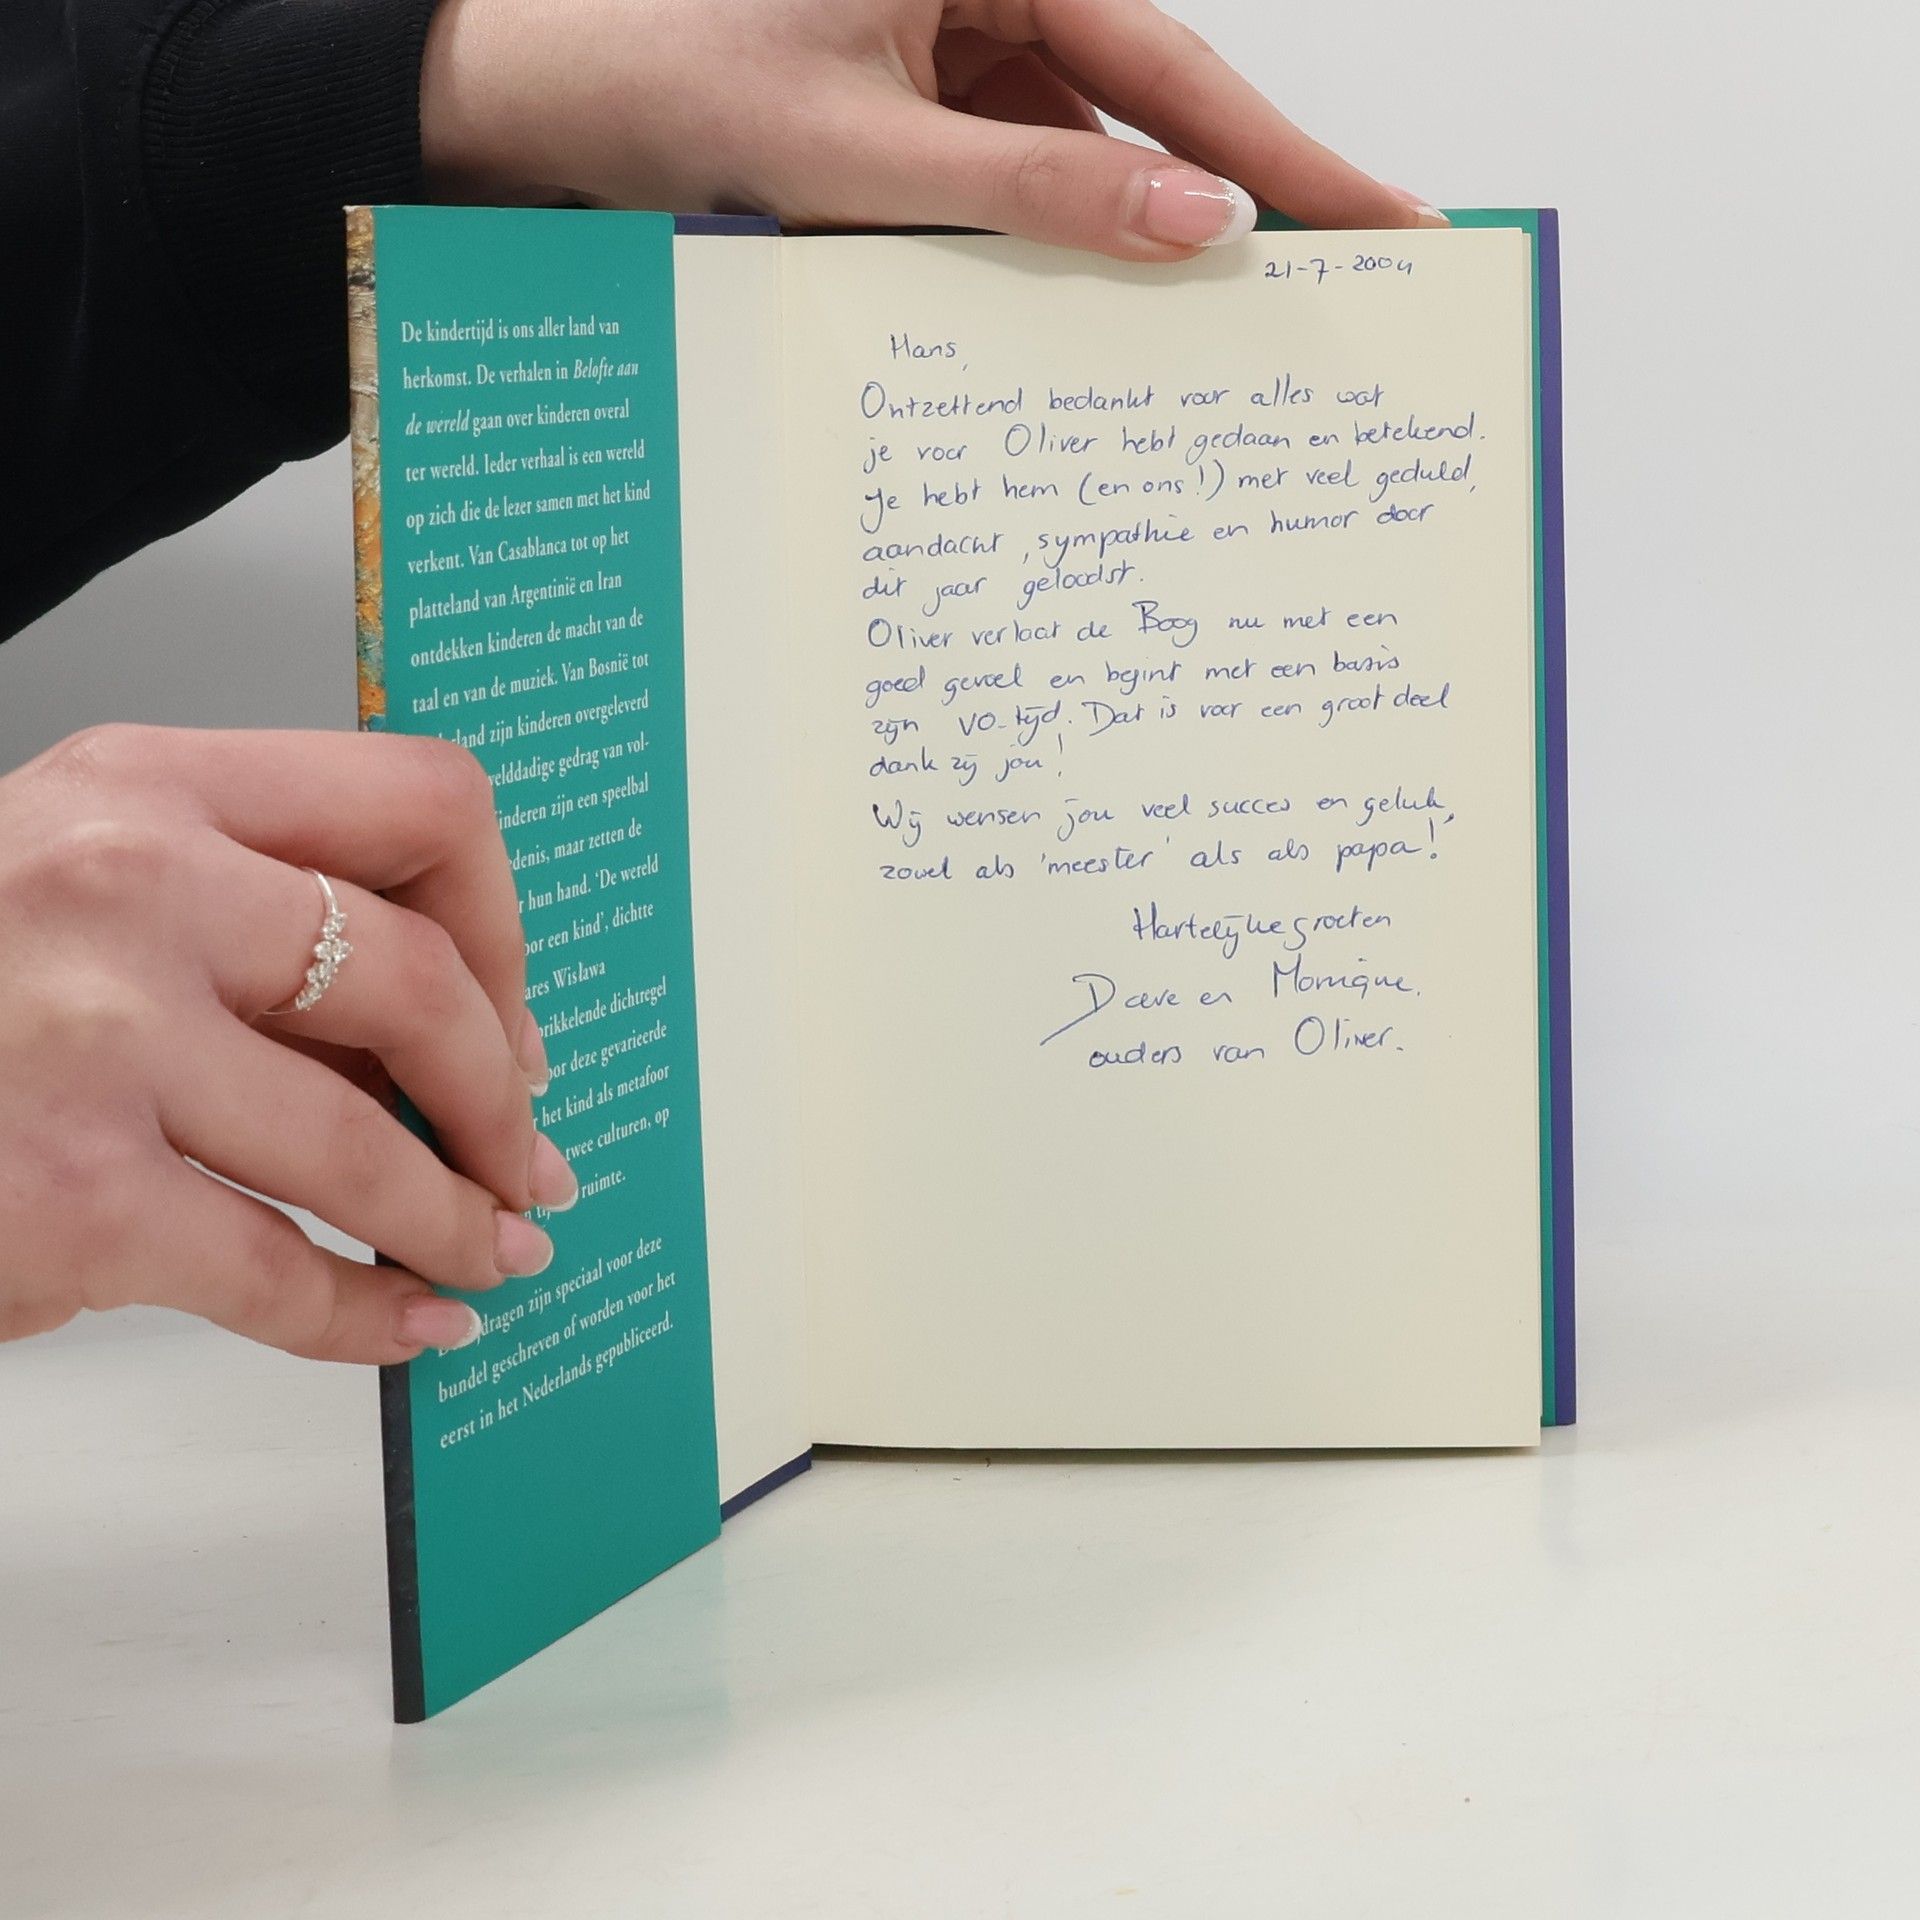 De kindertijd is ons aller land van
herkomst. De verhalen in Belofte aan
de wereld gaan over kinderen overal
ter wereld. Ieder verhaal is een wereld
op zich die de lezer samen met het kind
verkent. Van Casablanca tot op het
platteland van Argentinië en Iran
ontdekken kinderen de macht van de
taal en van de muziek. Van Bosnië tot
land zijn kinderen overgeleverd
velddadige gedrag van vol-
inderen zijn een speelbal
denis, maar zetten de
r hun hand. 'De wereld
oor een kind', dichtte
ares Wisława
prikkelende dichtregel
oor deze gevarieerde
r het kind als metafoor
twee culturen, op
ruimte.
dragen zijn speciaal voor deze
bundel geschreven of worden voor het
eerst in het Nederlands gepubliceerd.
21-7-2004
Hans,
Ontzettend bedankt voor alles wat
je voor Oliver hebt gedaan en betekend.
Je hebt hem (en ons!) met veel geduld,
aandacht, sympathie en humor door
dit jaar geloodst.
Oliver verlaat de Boog nu met een
goed gevoel en begint met een basis
zijn VO-tijd. Dat is voor een groot deel
dank zij jou!
Wij wensen jou veel succes en geluk,
zowel als 'meester' als als papa!
Hartelijke groeten
Dave en Monique.
ouders van Oliver.